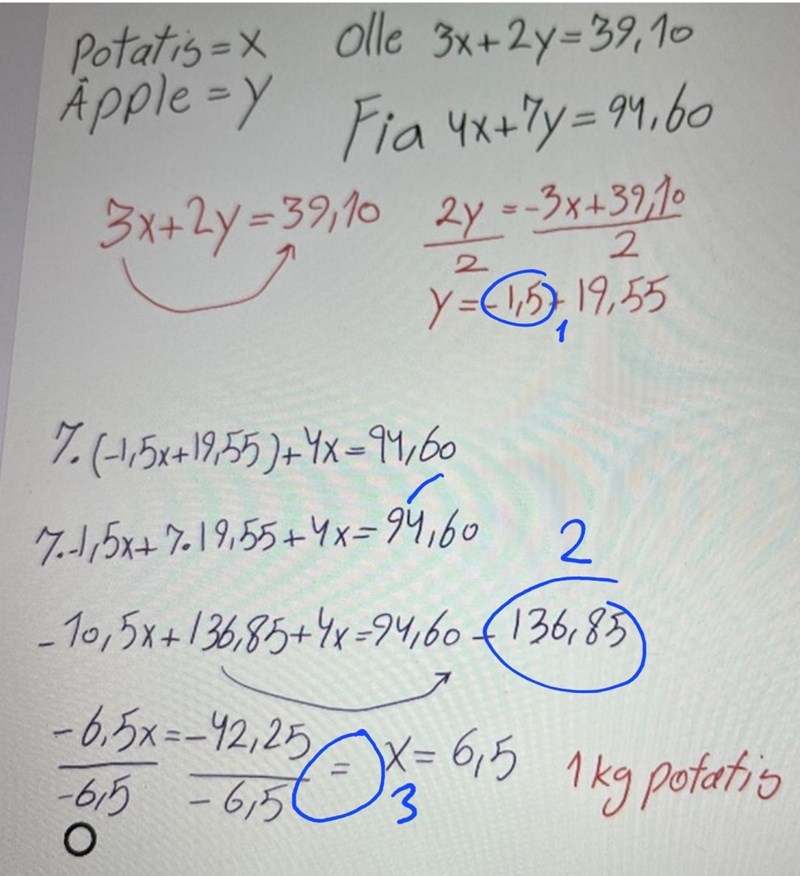 Potatis = x Olle 3x+2y=39,10
Äpple = y Fia 4x+7y=94,60
3x+2y=39,10 2y/2 = -3x+39,10/2
y=-1,5+19,55
1
7·(-1,5x+19,55)+4x=94,60
7·-1,5x+7·19,55+4x=94,60
2
-10,5x+136,85+4x=94,60-136,85
-6,5x/-6,5=-42,25/-6,5 = x=6,5 1kg potatis
3